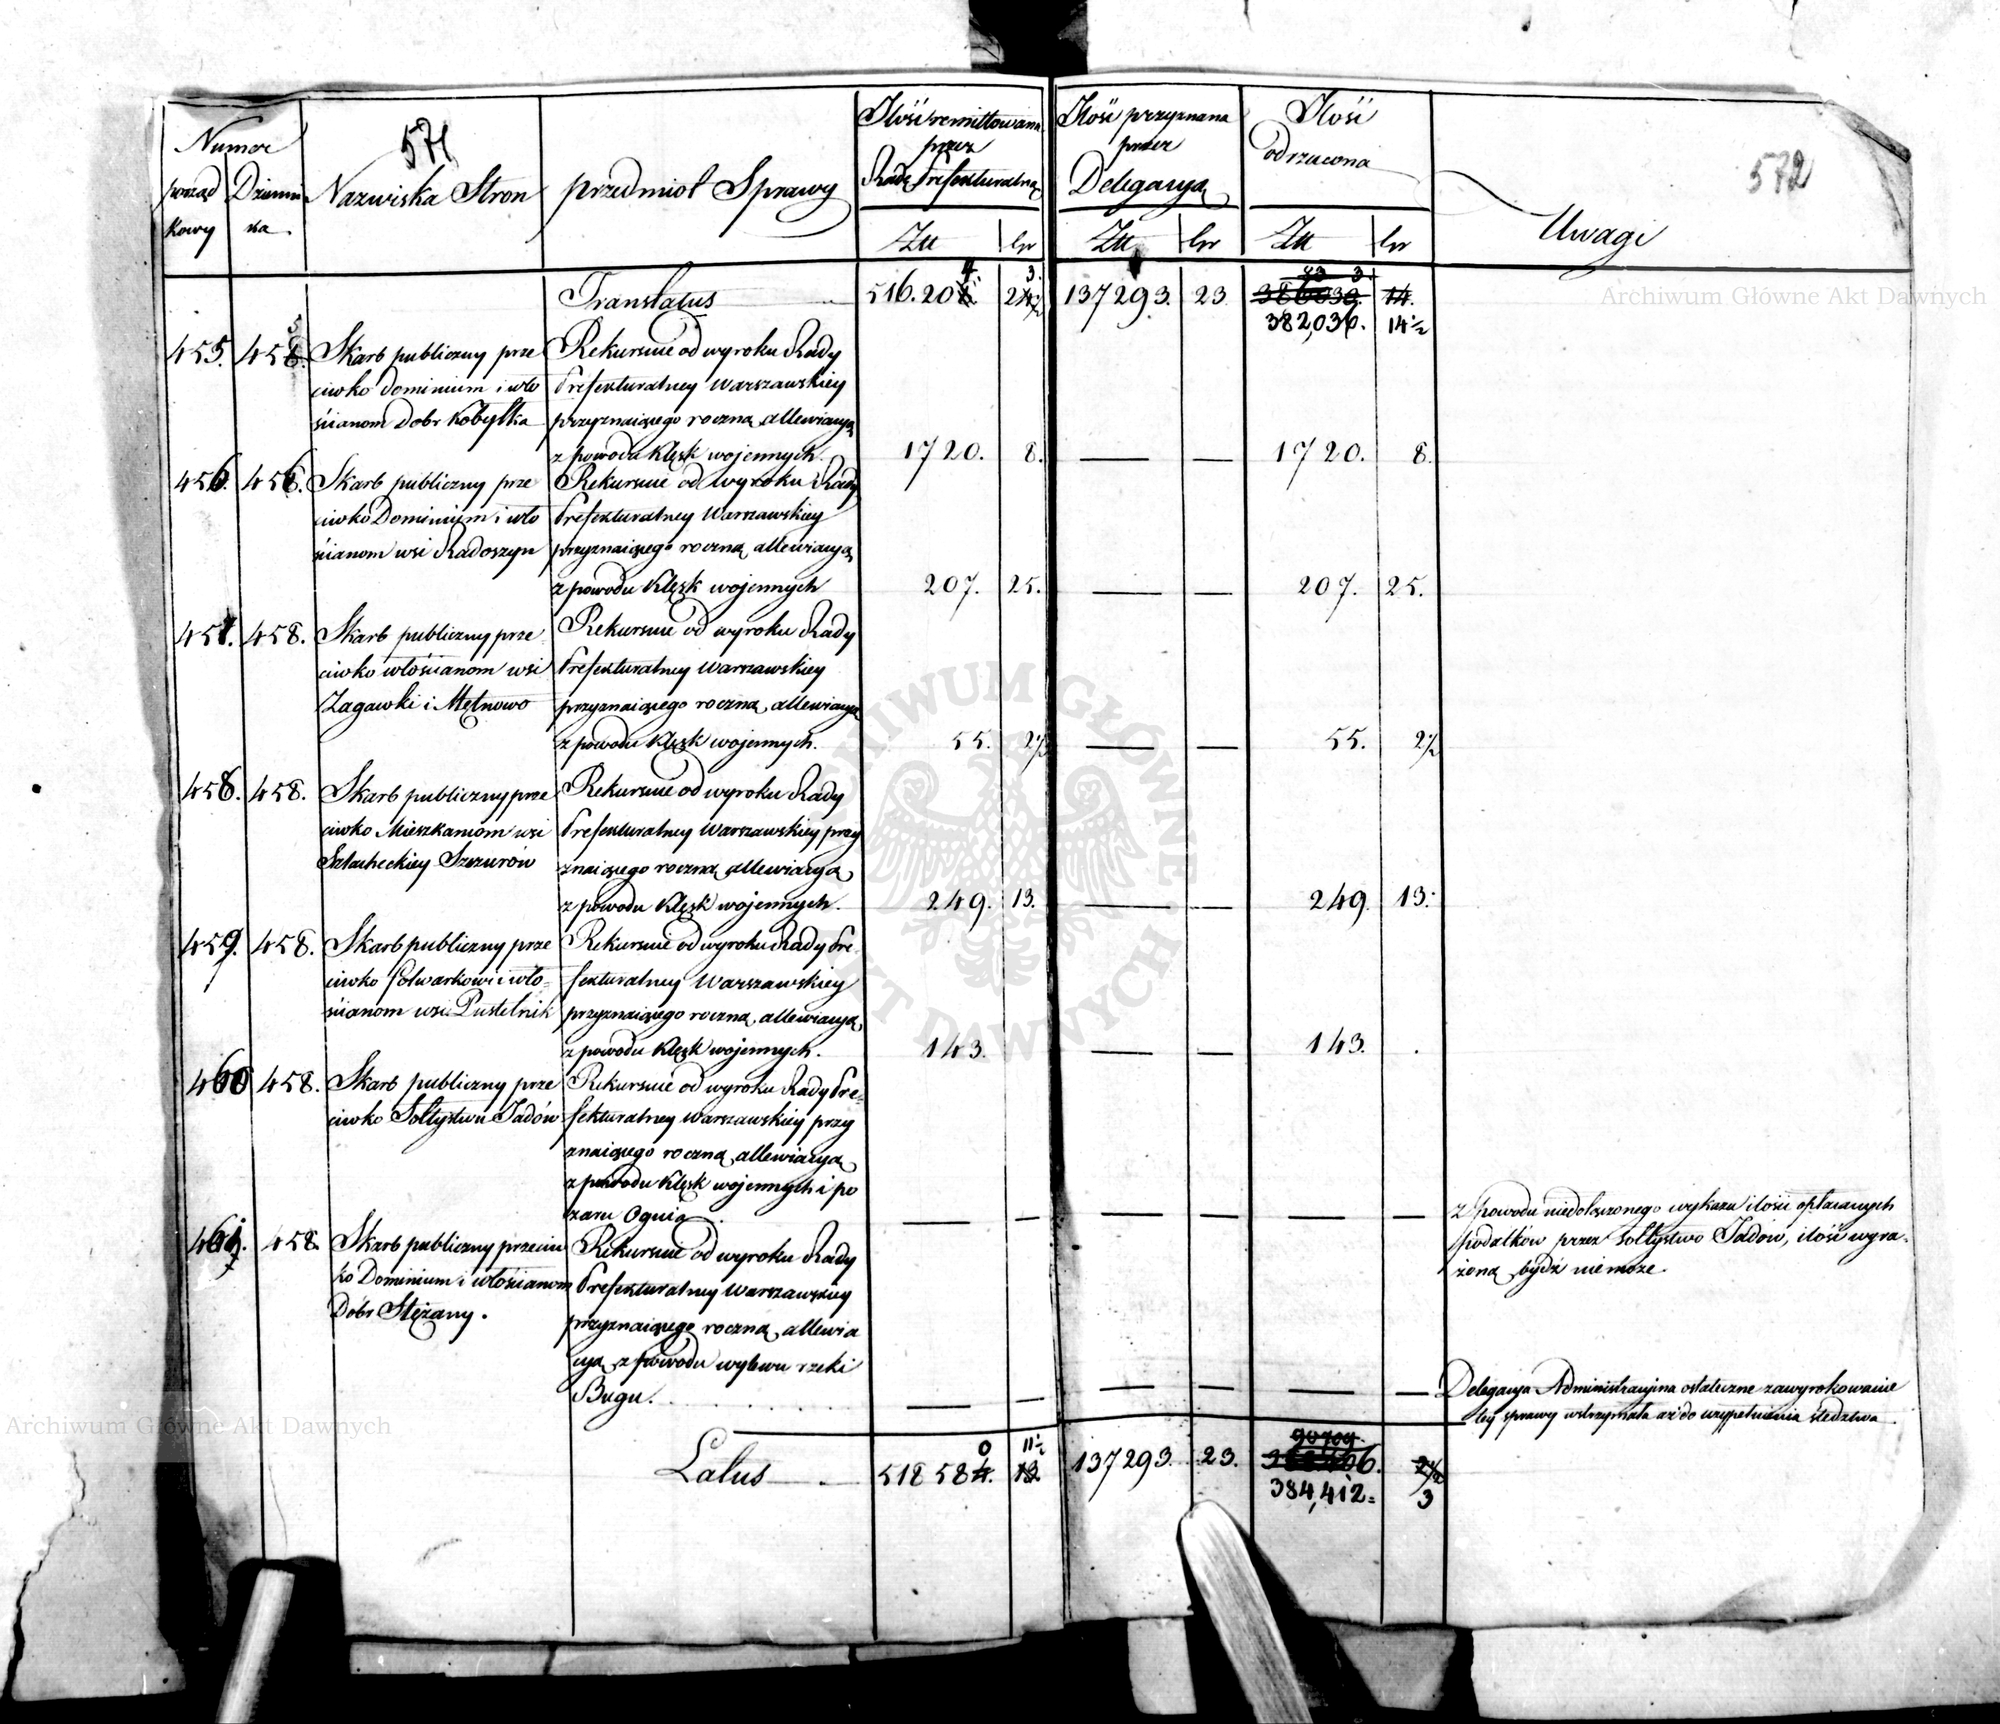 571
572
Numer
porząd
kowy
Dzienni
ka
Nazwiska Stron
przedmiot Sprawy
Ilość remittowana
przez
Radę Prefekturalną
Złł gr
Ilość przyznana
przez
Delegacyą
Złł gr
Ilość
odrzucona
Złł gr
Uwagi
Translatus 516.204. 3. 137293. 23. 382,036. 14½
455. 455 Skarb publiczny prze
ciwko dominium i wło
ścianom Dobr Kobyłka
Rekursuie od wyroku Rady
Prefekturalney Warszawskiey
przyznaiącego roczną allewiacyą
z powodu klęsk wojennych. 1720. 8. — — 1720. 8.
456. 458. Skarb publiczny prze
ciwko Dominium i wło
ścianom wsi Radoszyn
Rekursuie od wyroku Rady
Prefekturalney Warszawskiey
przyznaiącego roczną allewiacyą
z powodu klęsk wojennych 207. 25. — — 207. 25.
457. 458. Skarb publiczny prze
ciwko włościanom wsi
Zagawki i Mętnowo
Rekursuie od wyroku Rady
Prefekturalney Warszawskiey
przyznaiącego roczną allewiacyą
z powodu klęsk wojennych. 55. 2½ — — 55. 2½
458. 458. Skarb publiczny prze
ciwko Mieszkańcom wsi
Szlacheckiey Szczurów
Rekursuie od wyroku Rady
Prefekturalney Warszawskiey przy
znaiącego roczną allewiacyą
z powodu klęsk wojennych. 249. 13. — — 249. 13.
459. 458. Skarb publiczny prze
ciwko folwarkowi i wło=
ścianom wsi Pustelnik
Rekursuie od wyroku Rady Pre=
fekturalney Warszawskiey
przyznaiącego roczną allewiacyą
z powodu klęsk wojennych. 143. — — 143. .
460 458. Skarb publiczny prze
ciwko Sołtystwu Jadów
Rekursuie od wyroku Rady Pre=
fekturalney Warszawskiey przy
znaiącego roczną allewiacyą
z powodu klęsk wojennych i po
żaru Ognia . — — — — — —
z powodu niedołączonego wykazu ilości opłacanych
podatków przez Sołtystwo Jadów, ilość wyra=
żoną bydź nie może.
461. 458. Skarb publiczny przeciw
ko Dominium i włościanom
Dóbr Slężany.
Rekursuie od wyroku Rady
Prefekturalney Warszawskiey
przyznaiącego roczną allewia
cyą z powodu wylewu rzeki
Bugu. — — — — — —
Delegacya Administracyina ostateczne zawyrokowanie
tey sprawy wstrzymała aż do uzupełnienia śledztwa
Latus 518580. 11½ 137293. 23. 384,412= 3
Archiwum Główne Akt Dawnych
Archiwum Główne Akt Dawnych
ARCHIWUM GŁÓWNE AKT DAWNYCH